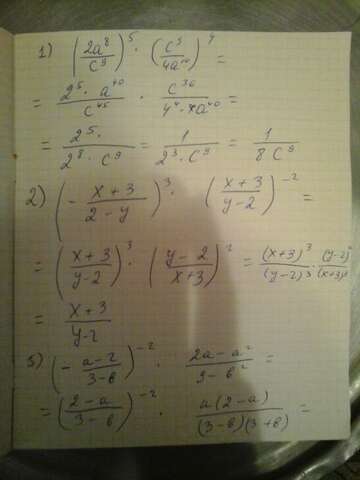 1) (2a⁸/c⁹)⁵ · (c⁹/4a¹⁰)⁴ =
= 2⁵ · a⁴⁰/c⁴⁵ · c³⁶/4⁴ · a⁴⁰ =
= 2⁵ ·/2⁸ · c⁹ = 1/2³ · c⁹ = 1/8 c⁹
2) (- x + 3/2 - y)³ · (x + 3/y - 2)⁻² =
= (x + 3/y - 2)³ · (y - 2/x + 3)² = (x+3)³/(y-2)³ · (y-2)²/(x+3)²
= x + 3/y - 2
5) (- a - 2/3 - b)⁻² · 2a - a²/9 - b² =
= (2 - a/3 - b)⁻² · a(2 - a)/(3 - b)(3 + b) =